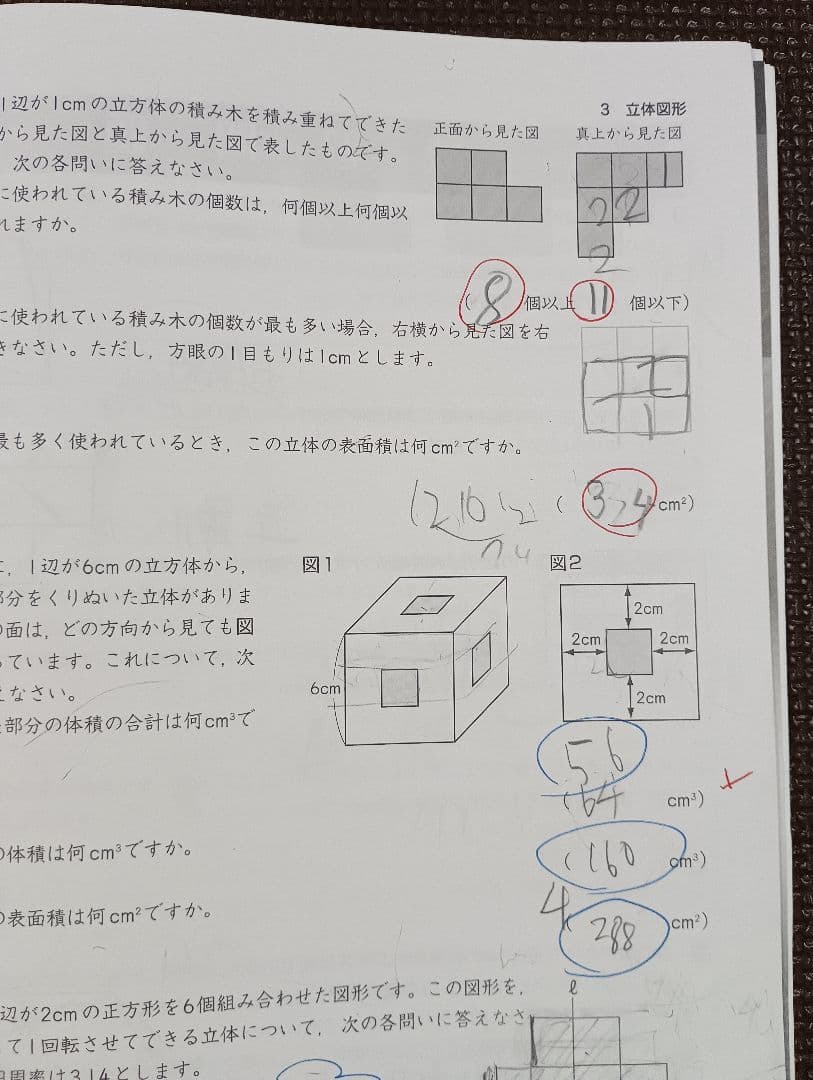 3 立体図形
1辺が1cmの立方体の積み木を積み重ねてできた
から見た図と真上から見た図で表したものです。
次の各問いに答えなさい。
に使われている積み木の個数は，何個以上何個以
れますか。
正面から見た図
真上から見た図
1
2 2
2
(8個以上 11個以下)
に使われている積み木の個数が最も多い場合，右横から見た図を右
きなさい。ただし，方眼の1目もりは1cmとします。
最も多く使われているとき，この立体の表面積は何cm²ですか。
12 10 12
34
(34cm²)
，1辺が6cmの立方体から，
部分をくりぬいた立体がありま
の面は，どの方向から見ても図
っています。これについて，次
えなさい。
部分の体積の合計は何cm³で
図1
6cm
図2
2cm
2cm
2cm
2cm
56
(64 cm³)
の体積は何cm³ですか。
(160 cm³)
の表面積は何cm²ですか。
4
(288 cm²)
辺が2cmの正方形を6個組み合わせた図形です。この図形を，
して1回転させてできる立体について，次の各問いに答えなさ
円周率は3.14とします。
ℓ